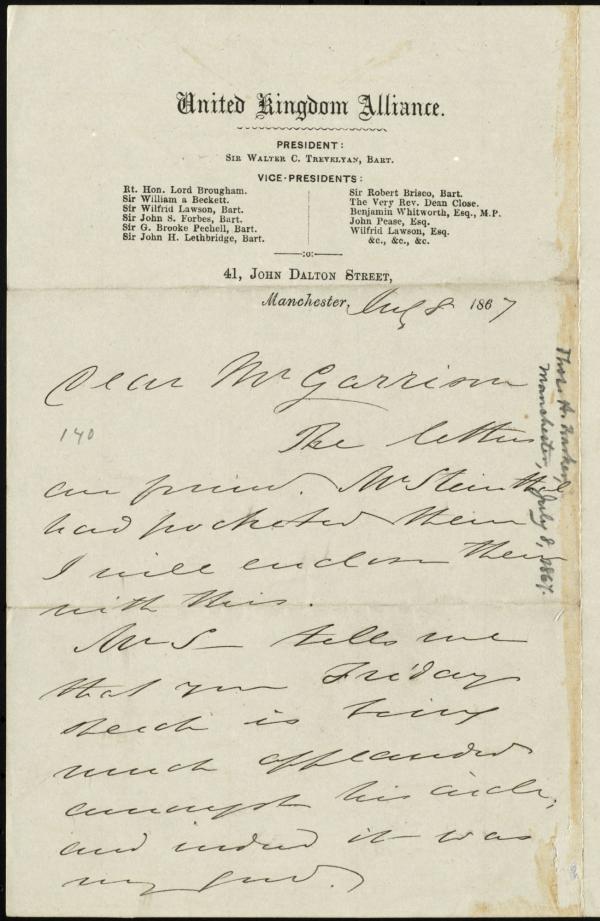 United Kingdom Alliance.
PRESIDENT:
SIR WALTER C. TREVELYAN, BART.
VICE-PRESIDENTS:
Rt. Hon. Lord Brougham.
Sir William a Beckett.
Sir Wilfrid Lawson, Bart.
Sir John S. Forbes, Bart.
Sir G. Brooke Pechell, Bart.
Sir John H. Lethbridge, Bart.
Sir Robert Brisco, Bart.
The Very Rev. Dean Close.
Benjamin Whitworth, Esq., M.P.
John Pease, Esq.
Wilfrid Lawson, Esq.
&c., &c., &c.
:o:
41, JOHN DALTON STREET,
Manchester, July 8 1867
Dear Mr Garrison
140
The letters
are found. Mr Steinthal
had pocketed them
I will enclose them
with this.
Mr S— tells me
that your Friday
speech is being
much applauded
amongst his circle,
and indeed it was
very good.
Thos. H. Barker,
Manchester, July 8, 1867.